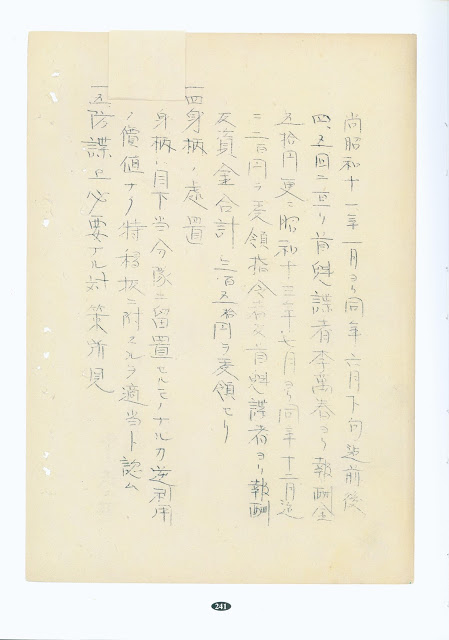 尚昭和十一年一月ヨリ同年六月下旬迄前後
四、五回ニ亘リ首魁諜者李萬春ヨリ報酬金
五拾円更ニ昭和十三年七月ヨリ同年十二月迄
ニ二百円ヲ受領指令 首魁諜者ヨリ報酬
及資金合計三百五拾円ヲ受領セリ
一四身柄ノ処置
身柄ハ目下当分隊ニ留置セルモノナルカ逆利用
ノ價値ナク特移扱ニ附スルヲ適当ト認ム
一五防諜上必要ナル対策所見
241